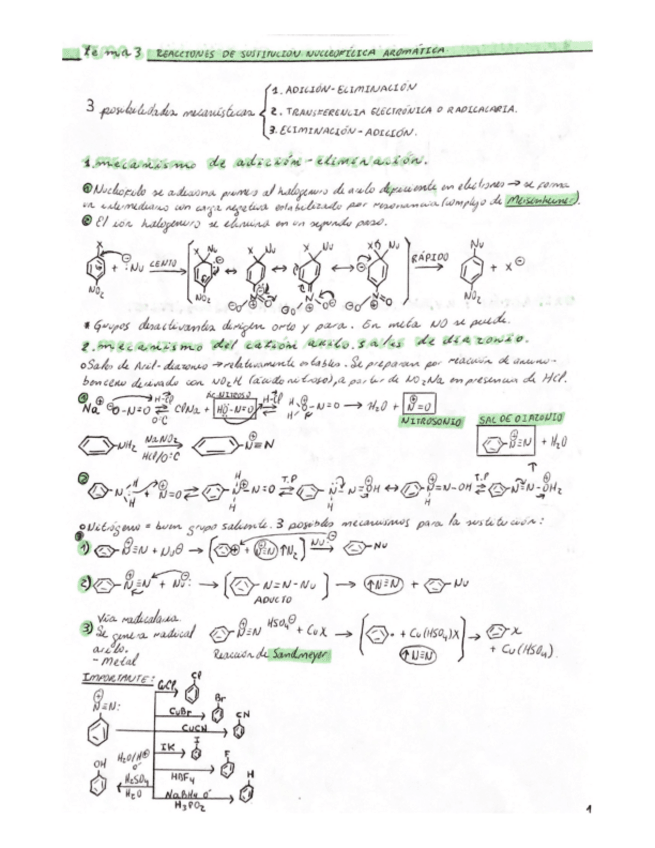 Tema 3 REACCIONES DE SUSTITUCIÓN NUCLEOFÍLICA AROMÁTICA.
3 posibilidades mecanísticas
1. ADICIÓN-ELIMINACIÓN
2. TRANSFERENCIA ELECTRÓNICA O RADICALARIA.
3. ELIMINACIÓN-ADICIÓN.
1. mecanismo de adición-eliminación.
① Nucleófilo se adiciona primero al halogenuro de arilo deficiente en electrones → se forma
un intermediario con carga negativa estabilizado por resonancia (complejo de Meisenheimer).
② El ión halogenuro se elimina en un segundo paso.
X + :Nu LENTO X Nu ↔ X Nu ↔ X Nu ↔ X Nu RÁPIDO Nu + X⊖
NO₂ NO₂ NO₂
* Grupos desactivantes dirigen orto y para. En meta NO se puede.
2. mecanismo del catión arilo. sales de diazonio.
o Sales de Aril-diazonio → relativamente estables. Se preparan por reacción de amino-
benceno derivado con NO₂H (ácido nitroso), a partir de NO₂Na en presencia de HCl.
AC. NITROSO
① Na⊕ ⊖O-N=O H-Cl 0ºC ClNa + HO-N=O H-Cl O-N=O → H₂O + N=O
NITROSONIO SAL DE DIAZONIO
NH₂ NaNO₂ HCl/0ºC N≡N N≡N + H₂O
② N H H + N=O N-N=O T.P N-N=OH ↔ N=N-OH T.P N=N-OH₂
o Nitrógeno = buen grupo saliente. 3 posibles mecanismos para la sustitución:
1) N≡N + Nu⊖ → [ ⊕ + N≡N ↑N₂ ] Nu:⊖ → Nu
2) N≡N + Nu: → [ N=N-Nu ] → ↑N≡N + Nu
ADUCTO
3) Vía radicalaria.
Se genera radical
arilo.
- Metal
N≡N HSO₄⊖ + CuX → [ • + Cu(HSO₄)X ↑N≡N ] → X + Cu(HSO₄).
Reacción de Sandmeyer
IMPORTANTE:
N≡N:
CuCl Cl
CuBr Br
CuCN CN
IK I
HBF₄ F
NaBH₄ ó H₃PO₂ H
OH H₂O/H⊕ ó H₂SO₄ H₂O
1